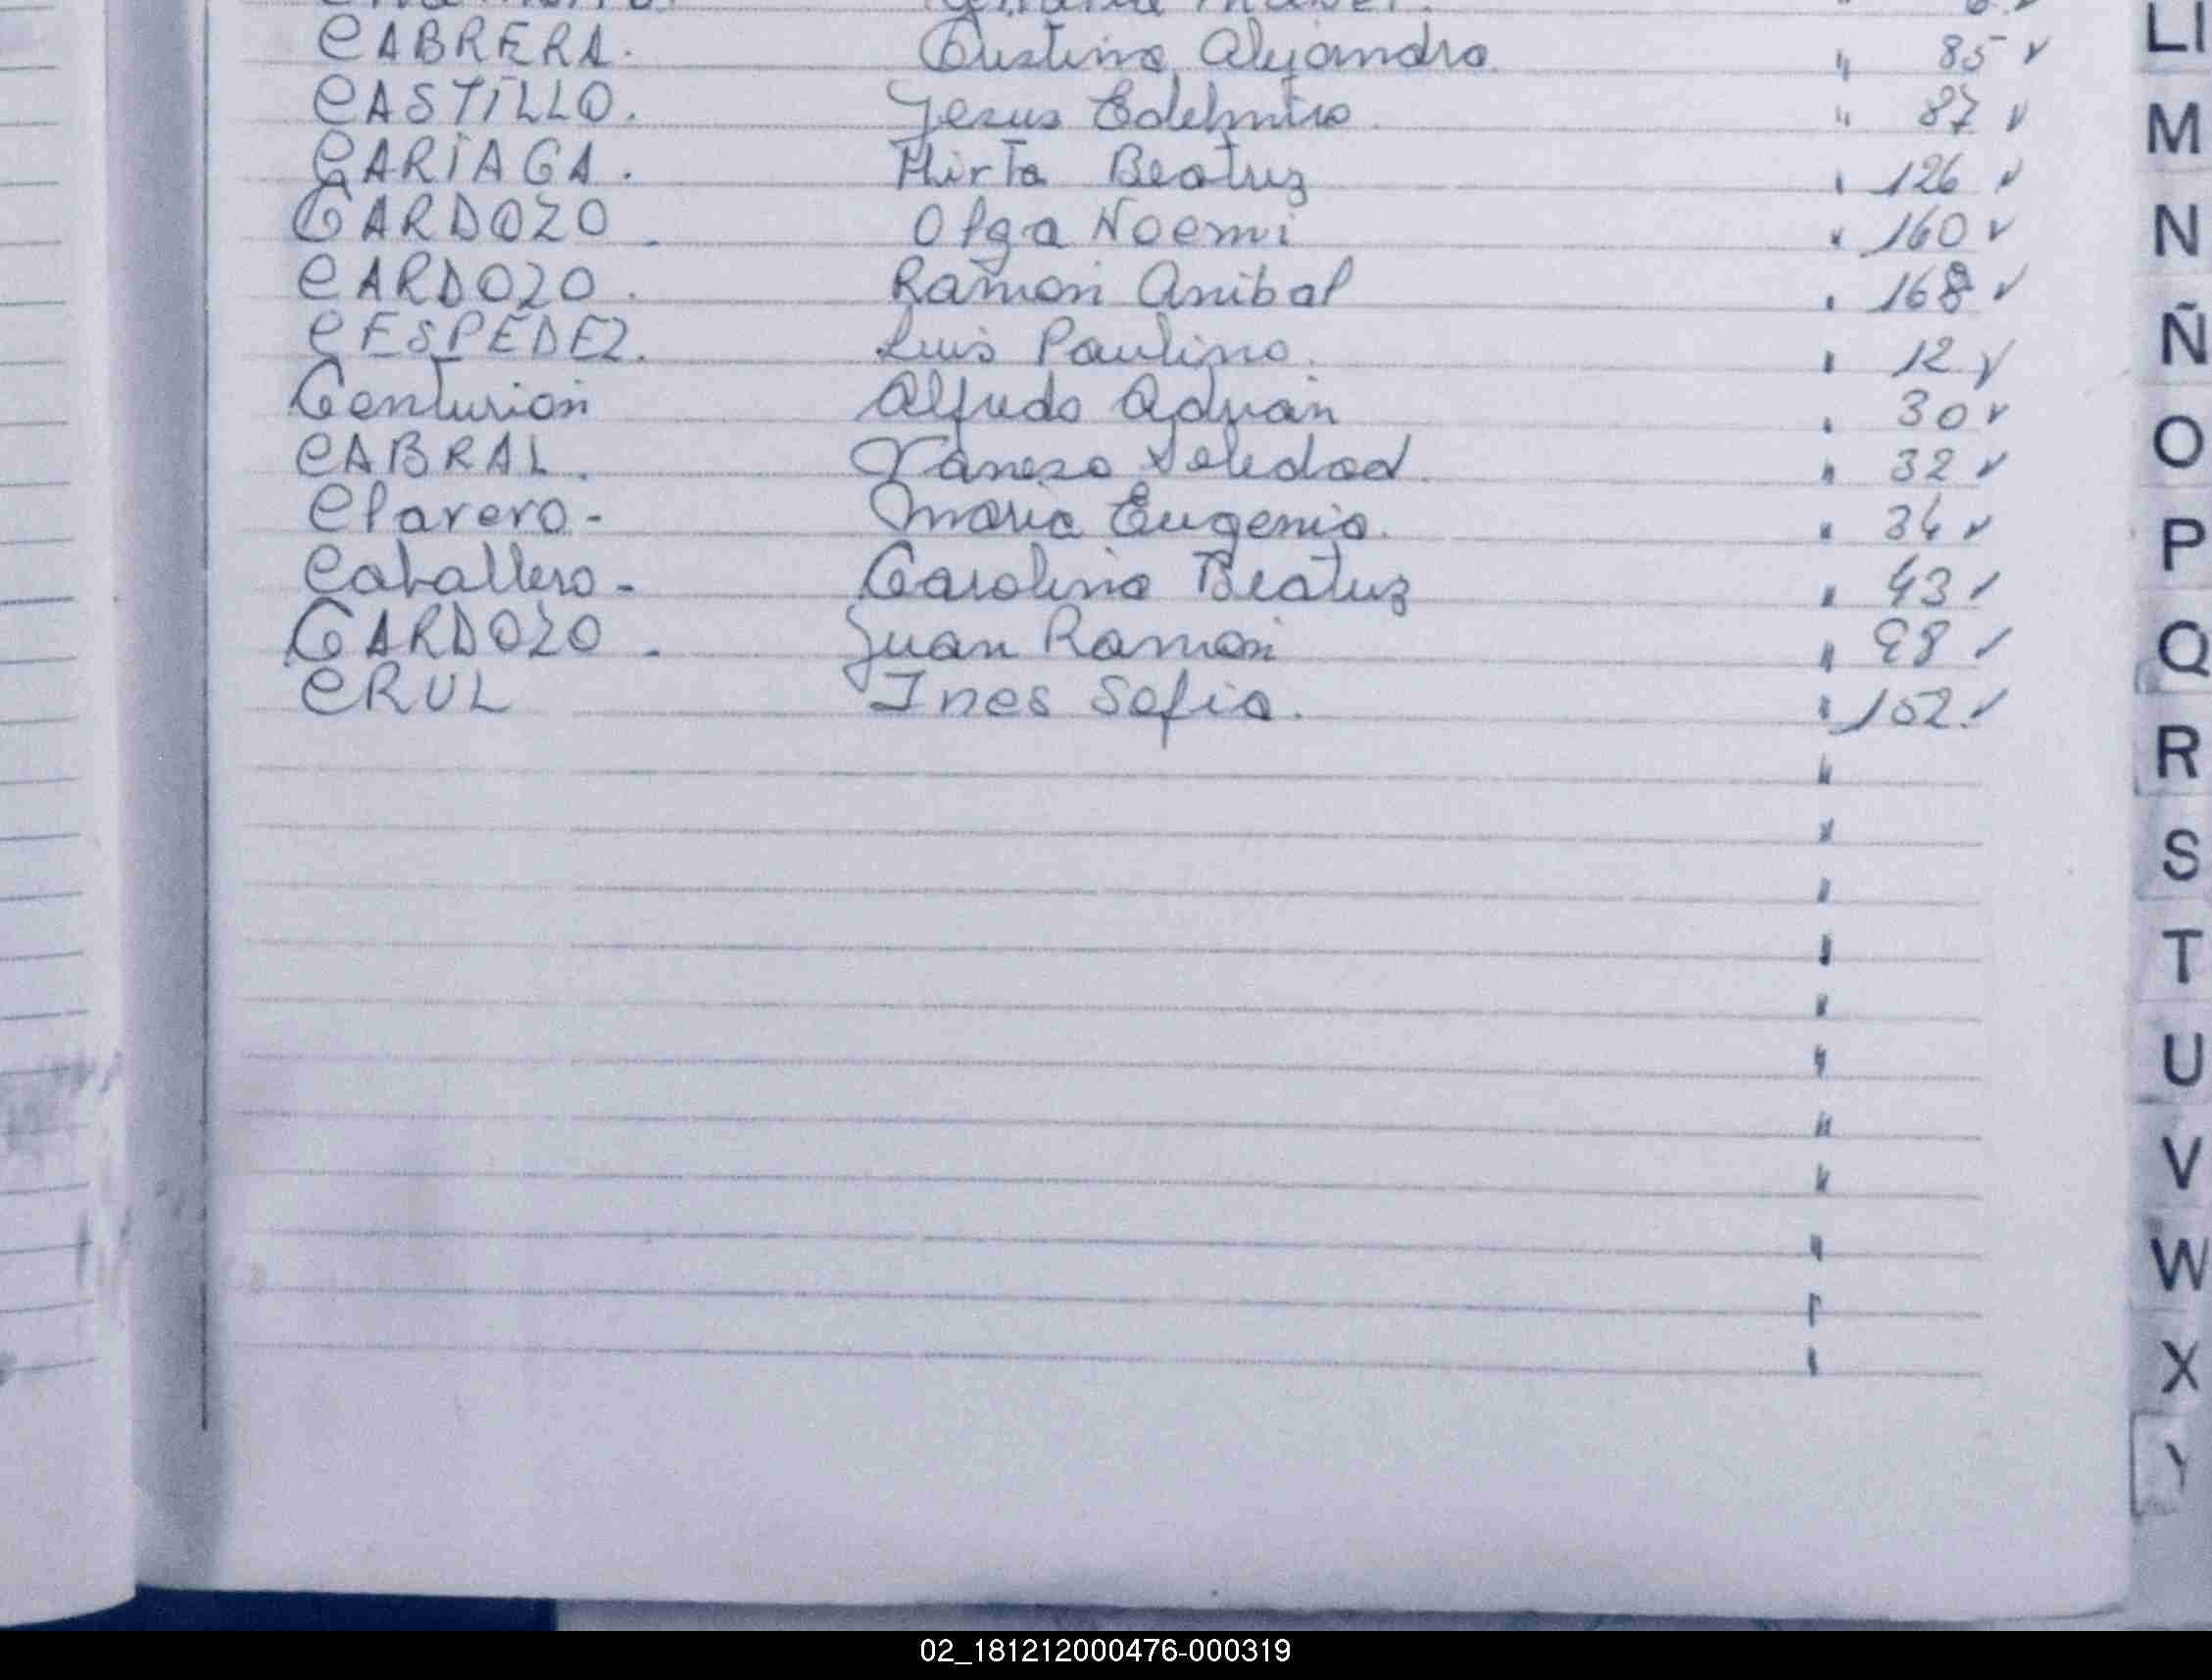 CABRERA. Cristina Alejandra " 85 ✓
CASTILLO. Jesus Edelmiro. " 87 ✓
CARIAGA. Mirta Beatriz " 126 ✓
CARDOZO. Olga Noemi " 160 ✓
CARDOZO. Ramon Anibal " 168 ✓
CESPEDEZ. Luis Paulino. " 12 ✓
Centurion Alfredo Adrian " 30 ✓
CABRAL. Vanesa Soledad. " 32 ✓
Clavero- Maria Eugenia. " 34 ✓
Caballero- Carolina Beatriz " 43 ✓
CARDOZO. Juan Ramon " 98 ✓
CRUL Ines Sofia. " 152. ✓
"
"
"
"
"
"
"
"
"
"
"
Ll
M
N
Ñ
O
P
Q
R
S
T
U
V
W
X
Y
02_181212000476-000319